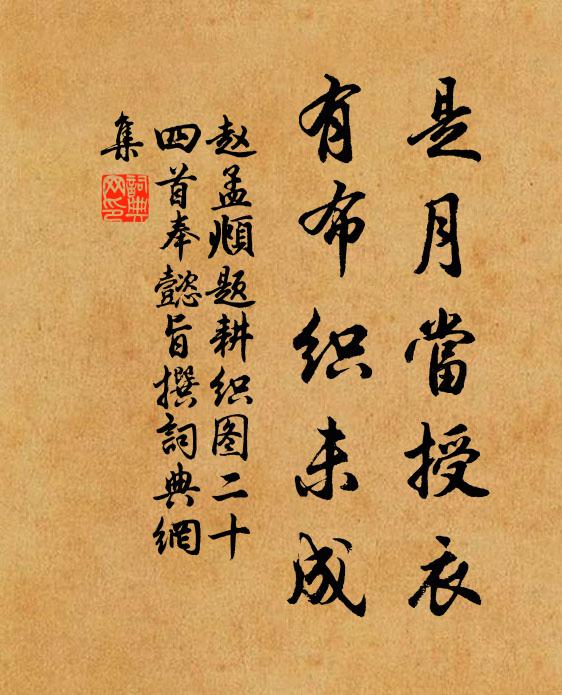 是月當授衣
有布织未成
赵孟頫题耕织图二十
四首奉懿旨撰詞典網
集
詞典
网印